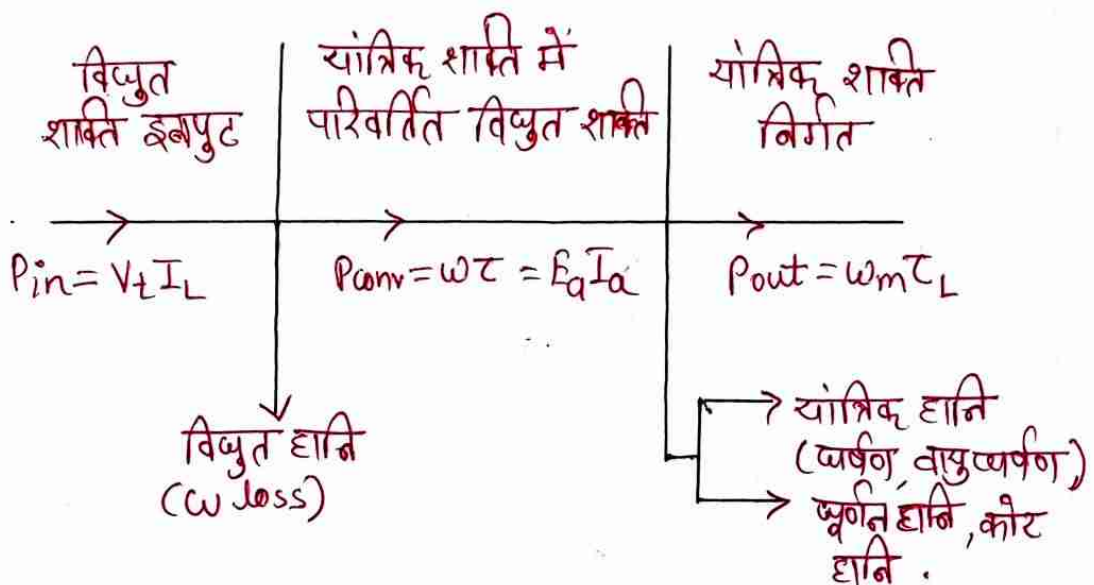 विद्युत
शक्ति इनपुट
यांत्रिक शक्ति में
परिवर्तित विद्युत शक्ति
यांत्रिक शक्ति
निर्गत
Pin = VtIL
Pconv = ωτ = EaIa
Pout = ωmτL
विद्युत हानि
(cu loss)
यांत्रिक हानि
(घर्षण, वायुघर्षण,)
घूर्णन हानि, कोर
हानि .